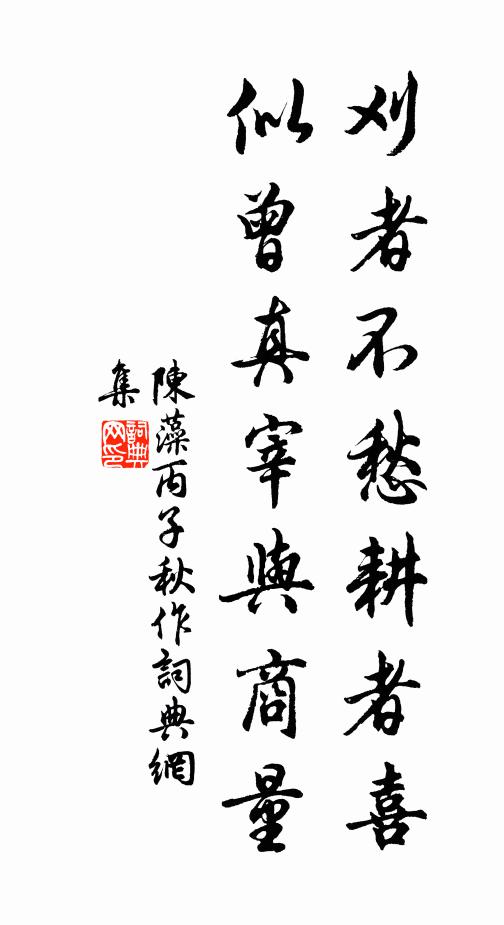 刈者不愁耕者喜
似曾真宰與商量
陳藻丙子秋作詞典網
集
詞典
网印